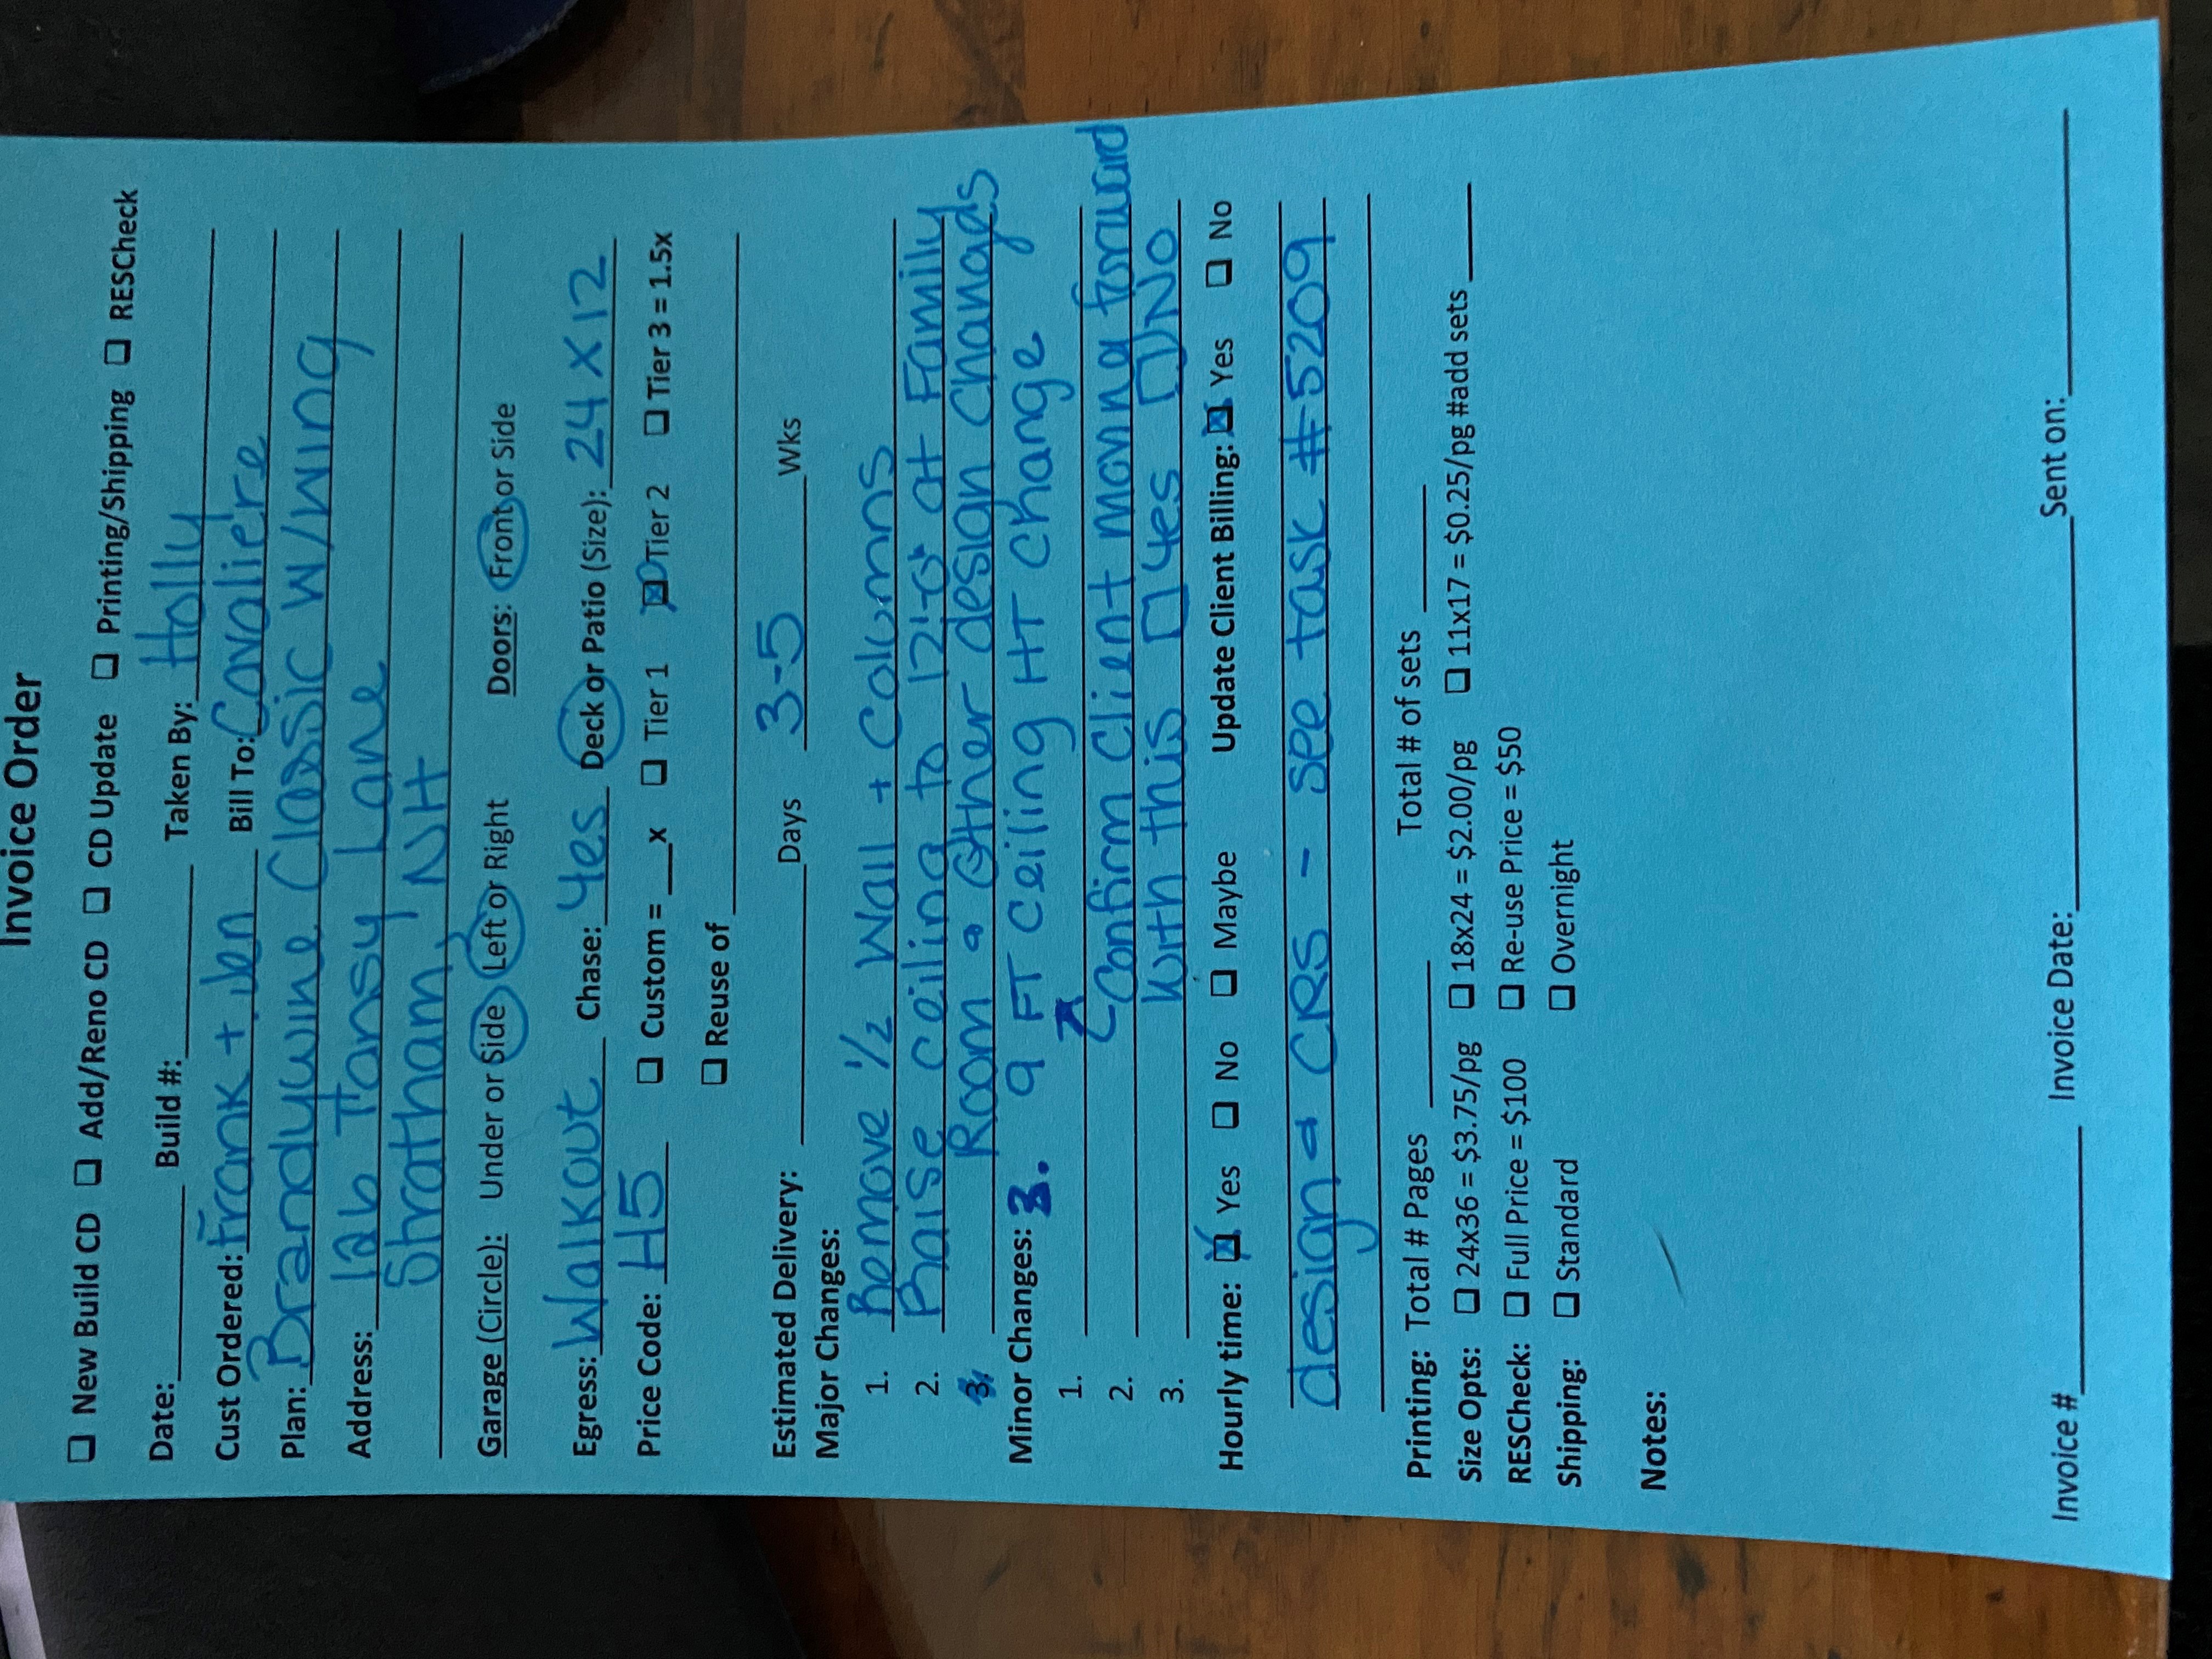 Invoice Order
❑ New Build CD ❑ Add/Reno CD ❑ CD Update ❑ Printing/Shipping ❑ RESCheck
Date:________ Build #:________ Taken By: Holly
Cust Ordered: Frank + Jen Bill To: Cavaliere
Plan: Brandywine Classic w/wing
Address: 12b Tansy Lane
Stratham, NH
Garage (Circle): Under or Side Left or Right Doors: Front or Side
Egress: Walkout Chase: Yes Deck or Patio (Size): 24 x 12
Price Code: H5 ❑ Custom = ___x ❑ Tier 1 ☒ Tier 2 ❑ Tier 3 = 1.5x
❑ Reuse of ________
Estimated Delivery: ________Days 3-5 Wks
Major Changes:
1. Remove 1/2 Wall + Columns
2. Raise ceiling to 12'-0" at Family
3. Room & Other design changes
Minor Changes: 3. 9 FT Ceiling HT Change
1.
2. Confirm Client moving forward
3. with this ❑ Yes ❑ No
Hourly time: ☒ Yes ❑ No ❑ Maybe Update Client Billing: ☒ Yes ❑ No
design & CRS - see task #5209
Printing: Total # Pages ________ Total # of sets ________
Size Opts: ❑ 24x36 = $3.75/pg ❑ 18x24 = $2.00/pg ❑ 11x17 = $0.25/pg #add sets ______
RESCheck: ❑ Full Price = $100 ❑ Re-use Price = $50
Shipping: ❑ Standard ❑ Overnight
Notes:
Invoice #________ Invoice Date:________ Sent on:________